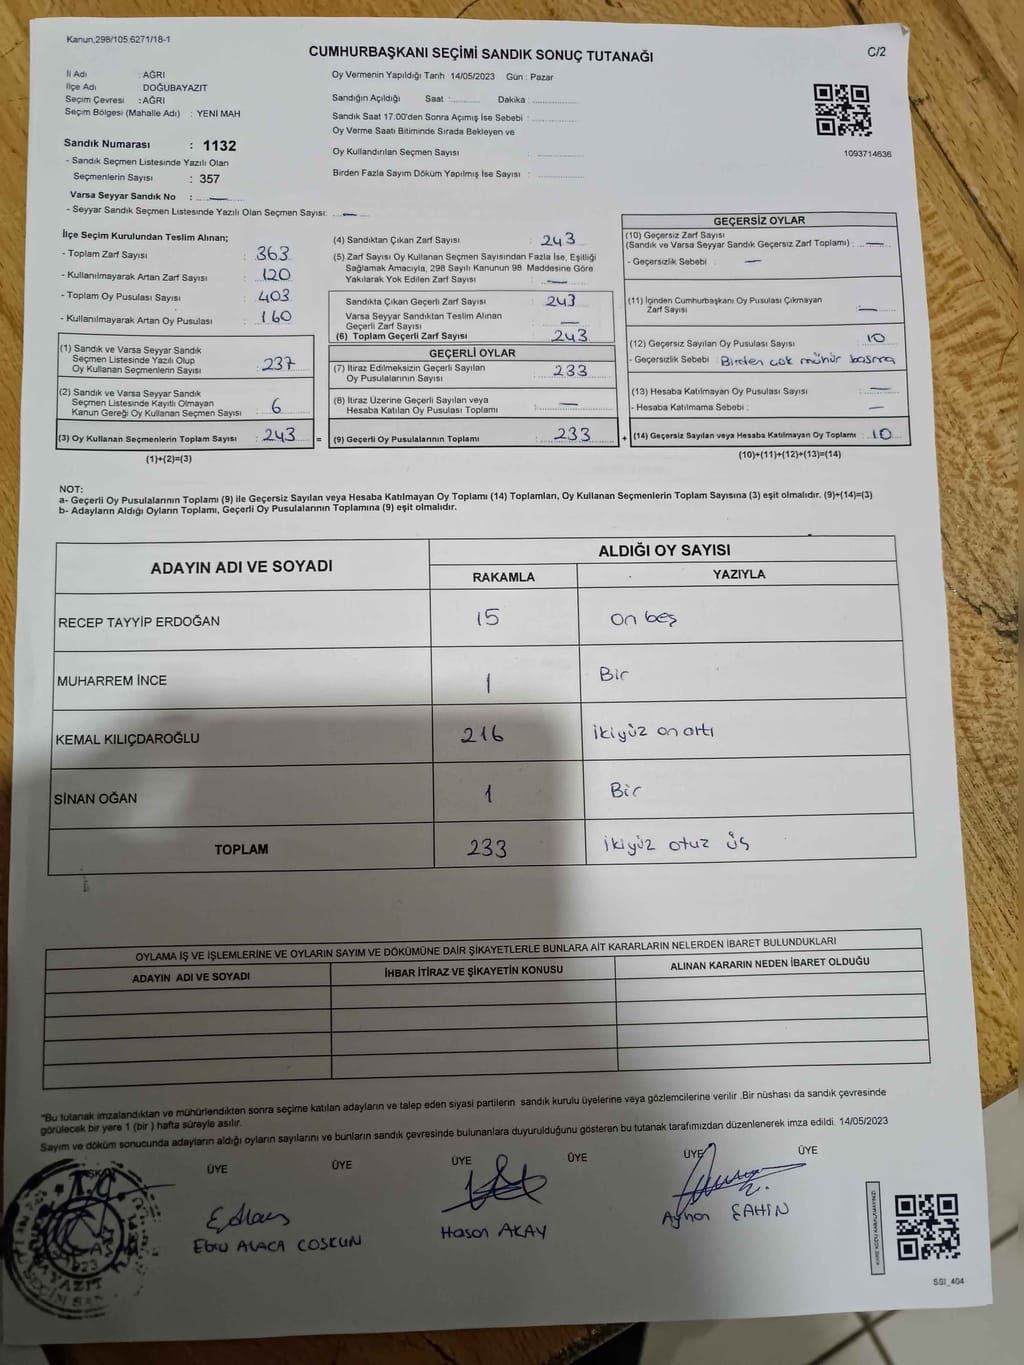 Kanun,298/105,6271/18-1
CUMHURBAŞKANI SEÇİMİ SANDIK SONUÇ TUTANAĞI
C/2
İl Adı : AĞRI
İlçe Adı DOĞUBAYAZIT
Seçim Çevresi : AĞRI
Seçim Bölgesi (Mahalle Adı) : YENI MAH
Sandık Numarası : 1132
- Sandık Seçmen Listesinde Yazılı Olan
Seçmenlerin Sayısı : 357
Varsa Seyyar Sandık No : —
- Seyyar Sandık Seçmen Listesinde Yazılı Olan Seçmen Sayısı: —
Oy Vermenin Yapıldığı Tarih 14/05/2023 Gün : Pazar
Sandığın Açıldığı Saat :.......... Dakika : ................
Sandık Saat 17:00'den Sonra Açımış İse Sebebi : ................
Oy Verme Saati Bitiminde Sırada Bekleyen ve
Oy Kullandırılan Seçmen Sayısı : ................
Birden Fazla Sayım Döküm Yapılmış İse Sayısı : ................
1093714636
İlçe Seçim Kurulundan Teslim Alınan;
- Toplam Zarf Sayısı : 363
- Kullanılmayarak Artan Zarf Sayısı : 120
- Toplam Oy Pusulası Sayısı : 403
- Kullanılmayarak Artan Oy Pusulası : 160
(1) Sandık ve Varsa Seyyar Sandık
Seçmen Listesinde Yazılı Olup
Oy Kullanan Seçmenlerin Sayısı : 237
(2) Sandık ve Varsa Seyyar Sandık
Seçmen Listesinde Kayıtlı Olmayan
Kanun Gereği Oy Kullanan Seçmen Sayısı : 6
(3) Oy Kullanan Seçmenlerin Toplam Sayısı : 243 =
(1)+(2)=(3)
(4) Sandıktan Çıkan Zarf Sayısı : 243
(5) Zarf Sayısı Oy Kullanan Seçmen Sayısından Fazla İse, Eşitliği
Sağlamak Amacıyla, 298 Sayılı Kanunun 98. Maddesine Göre
Yakılarak Yok Edilen Zarf Sayısı : —
Sandıkta Çıkan Geçerli Zarf Sayısı : 243
Varsa Seyyar Sandıktan Teslim Alınan
Geçerli Zarf Sayısı : —
(6) Toplam Geçerli Zarf Sayısı : 243
GEÇERLİ OYLAR
(7) İtiraz Edilmeksizin Geçerli Sayılan
Oy Pusulalarının Sayısı : 233
(8) İtiraz Üzerine Geçerli Sayılan veya
Hesaba Katılan Oy Pusulası Toplamı : —
(9) Geçerli Oy Pusulalarının Toplamı : 233 +
GEÇERSİZ OYLAR
(10) Geçersiz Zarf Sayısı
(Sandık ve Varsa Seyyar Sandık Geçersiz Zarf Toplamı) : —
- Geçersizlik Sebebi : —
(11) İçinden Cumhurbaşkanı Oy Pusulası Çıkmayan
Zarf Sayısı : —
(12) Geçersiz Sayılan Oy Pusulası Sayısı : 10
- Geçersizlik Sebebi : Birden çok mühür basma
(13) Hesaba Katılmayan Oy Pusulası Sayısı : —
- Hesaba Katılmama Sebebi : —
(14) Geçersiz Sayılan veya Hesaba Katılmayan Oy Toplamı : 10
(10)+(11)+(12)+(13)=(14)
NOT:
a- Geçerli Oy Pusulalarının Toplamı (9) ile Geçersiz Sayılan veya Hesaba Katılmayan Oy Toplamı (14) Toplamları, Oy Kullanan Seçmenlerin Toplam Sayısına (3) eşit olmalıdır. (9)+(14)=(3)
b- Adayların Aldığı Oyların Toplamı, Geçerli Oy Pusulalarının Toplamına (9) eşit olmalıdır.
ADAYIN ADI VE SOYADI
ALDIĞI OY SAYISI
RAKAMLA YAZIYLA
RECEP TAYYİP ERDOĞAN 15 On beş
MUHARREM İNCE 1 Bir
KEMAL KILIÇDAROĞLU 216 ikiyüz on altı
SİNAN OĞAN 1 Bir
TOPLAM 233 ikiyüz otuz üç
OYLAMA İŞ VE İŞLEMLERİNE VE OYLARIN SAYIM VE DÖKÜMÜNE DAİR ŞİKAYETLERLE BUNLARA AİT KARARLARIN NELERDEN İBARET BULUNDUKLARI
ADAYIN ADI VE SOYADI İHBAR İTİRAZ VE ŞİKAYETİN KONUSU ALINAN KARARIN NEDEN İBARET OLDUĞU
*Bu tutanak imzalandıktan ve mühürlendikten sonra seçime katılan adayların ve talep eden siyasi partilerin sandık kurulu üyelerine veya gözlemcilerine verilir .Bir nüshası da sandık çevresinde
görülecek bir yere 1 (bir ) hafta süreyle asılır.
Sayım ve döküm sonucunda adayların aldığı oyların sayılarını ve bunların sandık çevresinde bulunanlara duyurulduğunu gösteren bu tutanak tarafımızdan düzenlenerek imza edildi. 14/05/2023
ÜYE ÜYE ÜYE ÜYE ÜYE ÜYE
T.C.
Ebru ALACA COŞKUN
Hasan AKAY
Ayhan ŞAHİN
SSI_404